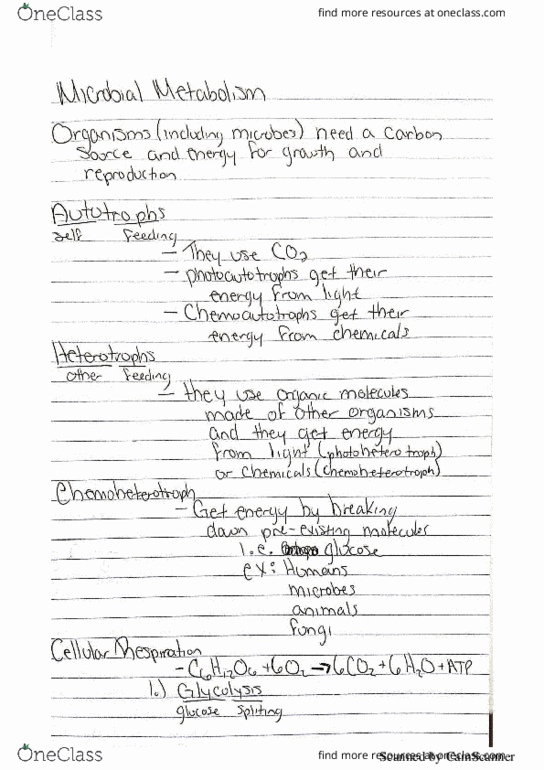 OneClass
find more resources at oneclass.com
Microbial Metabolism
Organisms (including microbes) need a carbon
source and energy for growth and
reproduction
Autotrophs
self feeding
- They use CO2
- photoautotrophs get their
energy from light
- Chemoautotrophs get their
energy from chemicals
Heterotrophs
other feeding
- they use organic molecules
made of other organisms
and they get energy
from light (photoheterotroph)
or chemicals (chemoheterotroph)
Chemoheterotroph
- Get energy by breaking
down pre-existing molecules
i.e. glucose
ex: Humans
microbes
animals
fungi
Cellular Respiration
- C6H12O6 + 6O2 → 6CO2 + 6H2O + ATP
1.) Glycolysis
glucose spliting
OneClass
find more resources at oneclass.com
Scanned by CamScanner